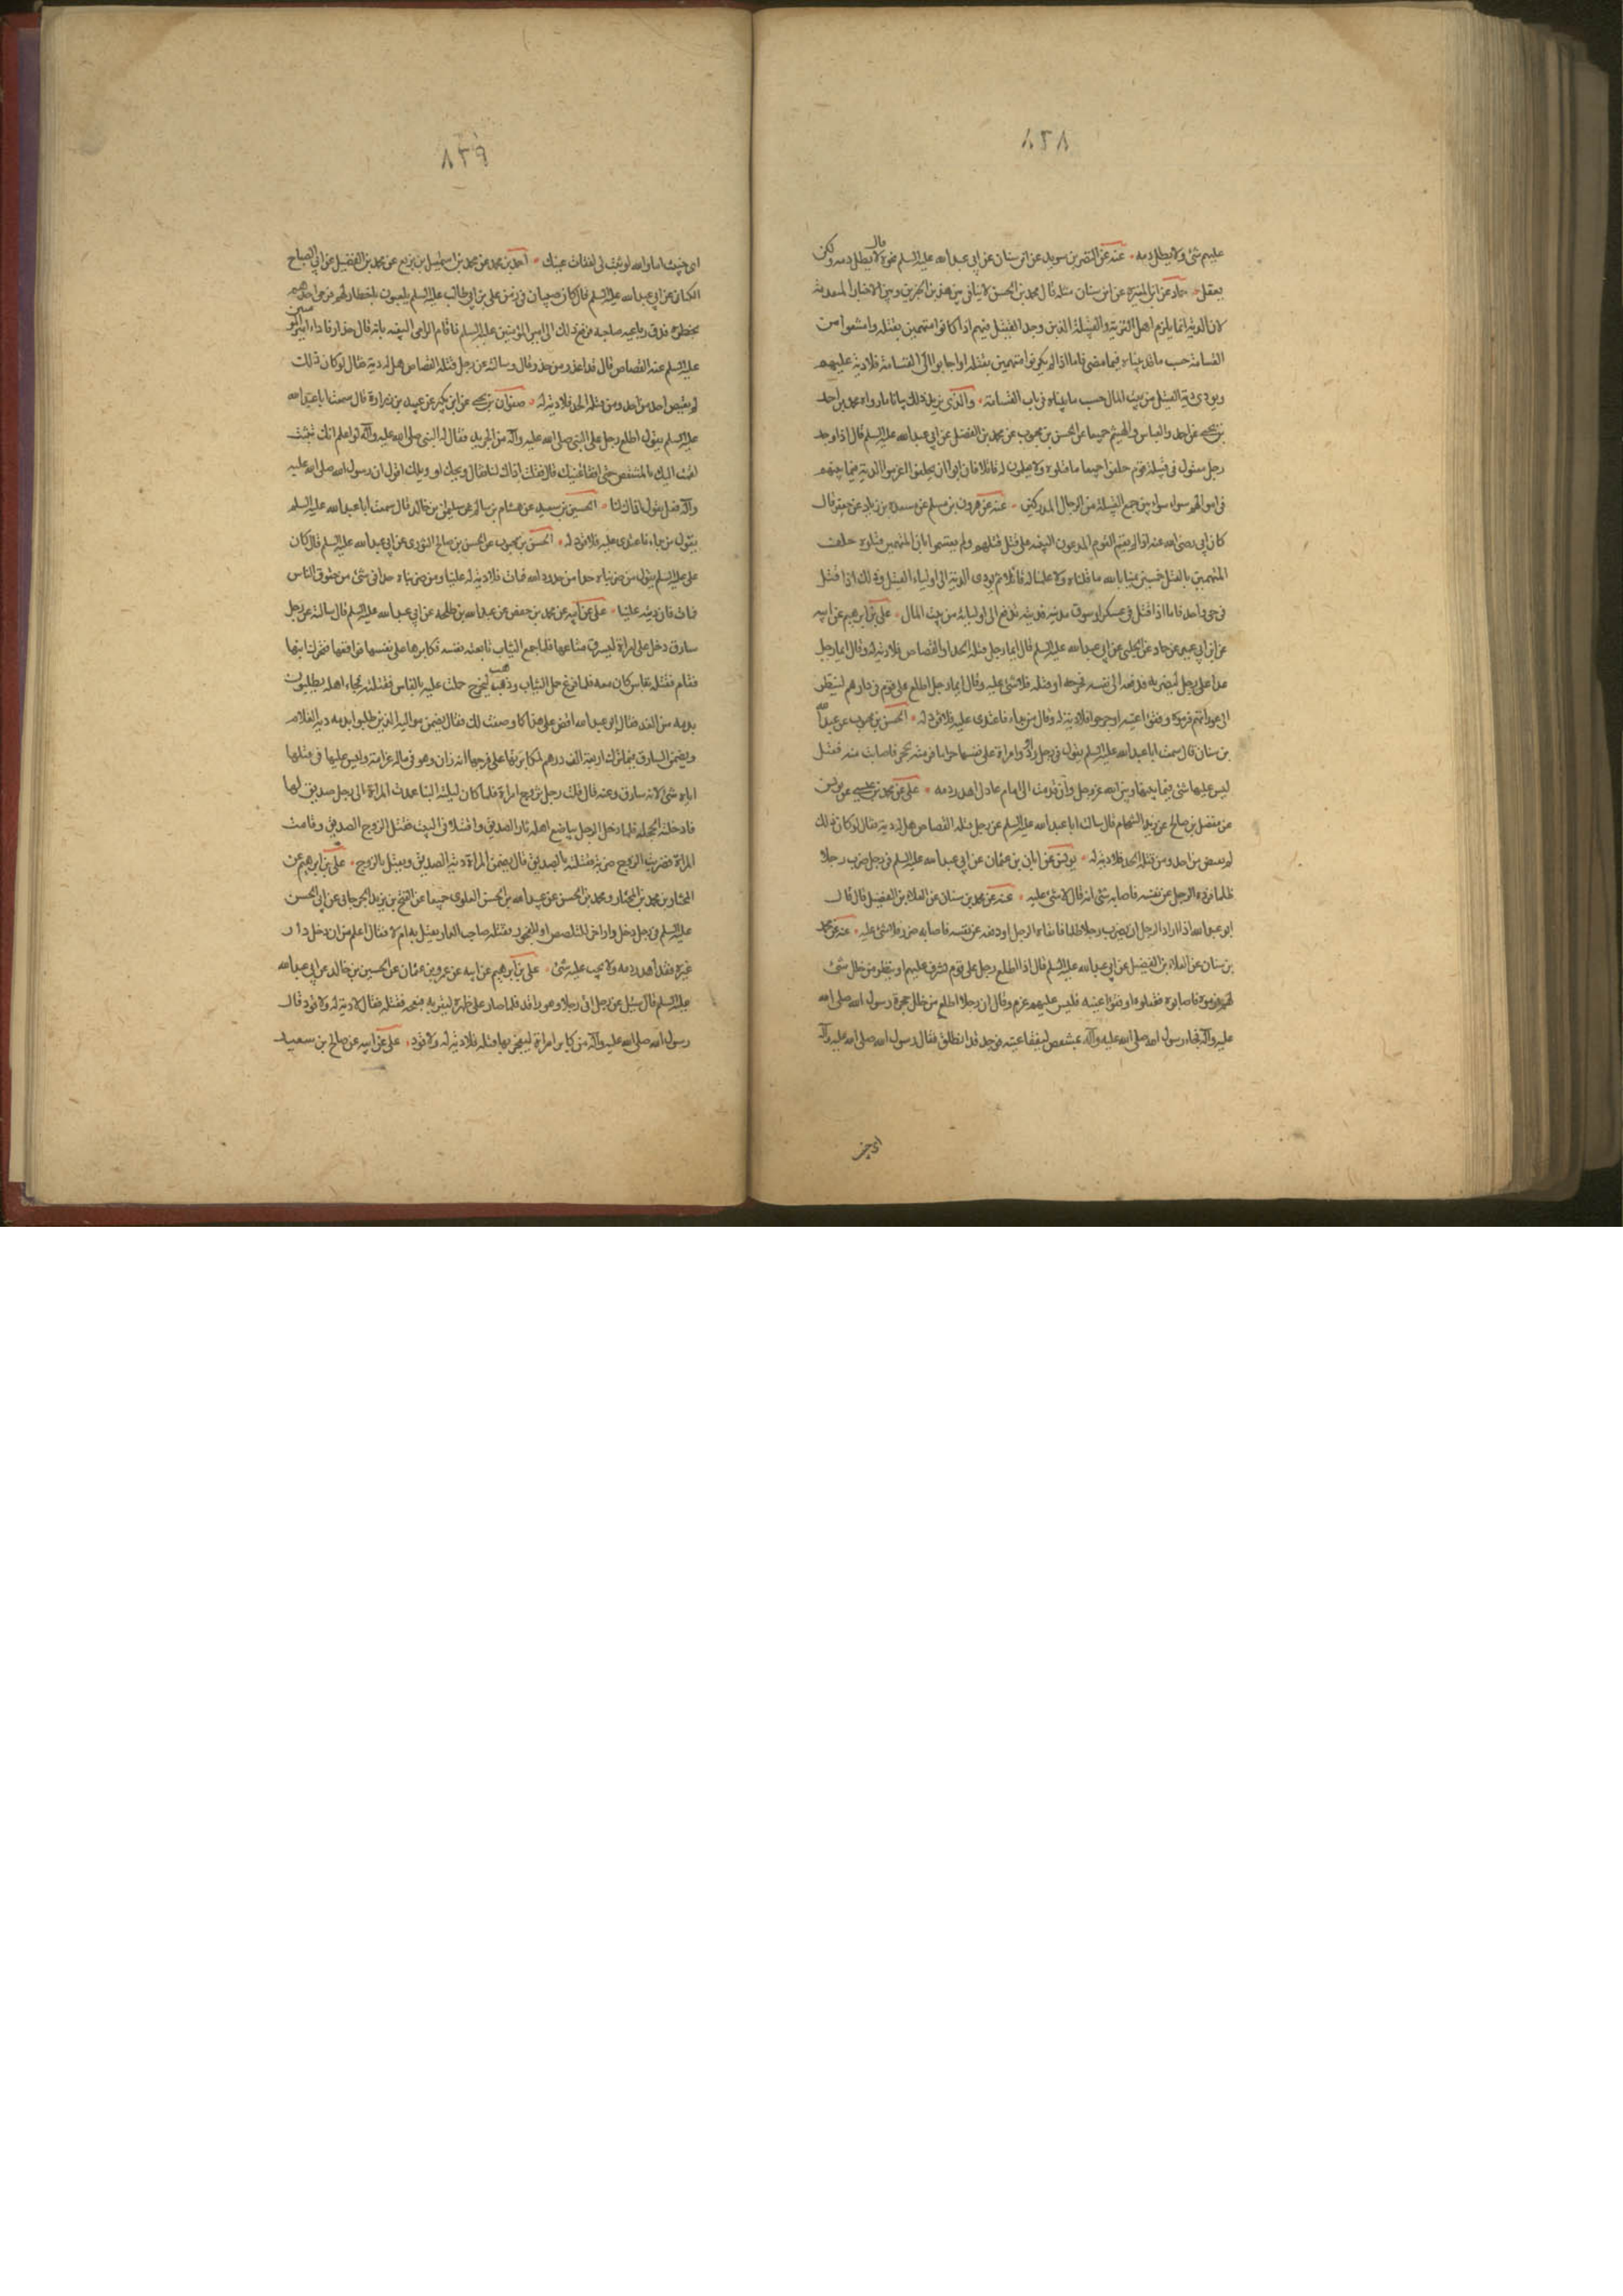 ٨٢٨
عليهم شئ ولا يبطل دمه عنه عن النضر بن سويد عن ابن سنان عن ابي عبد الله عليه السلم نحوه قال لا يبطل دمه ولكن
يعقل حماد عن ابن المغيرة عن ابن سنان مثله قال محمد بن الحسن لا ينافى بين هذين الخبرين وبين الاخبار المتقدمة
لان الدية انما يلزم اهل القرية والقبيلة الذين وجد القتيل فيهم اذا كانوا متهمين بقتله وامتنعوا من
القسامة حسب ما قد بيناه فيما مضى فاما اذا لم يكونوا متهمين بقتله او اجابوا الى القسامة فلا دية عليهم
ويودى دية القتيل من بيت المال حسب ما بيناه فى باب القسامة والذى يزيد ذلك بيانا ما رواه محمد بن احمد
بن يحيى عن احمد والعباس والهيثم جميعا عن الحسن بن محبوب عن محمد بن الفضل عن ابي عبد الله عليه السلم قال اذا وجد
رجل مقتول فى قبيلة قوم حلفوا جميعا ما قتلوه ولا يعلمون له قاتلا فان ابوا ان يحلفوا اغرموا الدية فيما بينهم
فى اموالهم سواء سواء بين جميع القبيلة من الرجال المدركين عنه عن هرون بن مسلم عن مسعدة بن زياد عن جعفر قال
كان ابي رضى الله عنه اذا لم يقم القوم المدعون البينه على قتل قتيلهم ولم يقسموا بان المتهمين قتلوه حلف
المتهمين بالقتل خمسين يمينا بالله ما قتلناه ولا علمنا له قاتلا ثم يودى الدية الى اولياء القتيل وذلك اذا قتل
فى حى واحد فاما اذا قتل فى عسكر او سوق مدينة فديته تدفع الى اوليائه من بيت المال على بن ابرهيم عن ابيه
عن ابن ابي عمير عن حماد عن الحلبى عن ابي عبد الله عليه السلم قال ايما رجل قتله الحد او القصاص فلا دية له وقال ايما رجل
عدا على رجل ليضربه فدفعه الى نفسه فجرحه او قتله فلا شئ عليه وقال ايما رجل اطلع على قوم فى دارهم لينظر
الى عوراتهم فرموه وفقؤا عينه او جرحوه فلا دية له وقال من بداء فاعتدى عليه فلا قود له الحسن بن محبوب عن عبد الله
بن سنان قال سمعت ابا عبد الله عليه السلم يقول فى رجل راود امراة على نفسها حراما فرمته بحجر فاصابت منه فقتل
ليس عليها شئ فيما بينها وبين الله عز وجل وان قدمت الى امام عادل اهدر دمه على عن محمد بن عيسى عن يونس
عن مفضل بن صالح عن زيد الشحام قال سالت ابا عبد الله عليه السلم عن رجل قتله القصاص هل له دية فقال لو كان ذلك
لم يقتص من احد ومن قتله الحد فلا دية له يونس عن ابان بن عثمان عن ابي عبد الله عليه السلم فى رجل ضرب رجلا
ظلما فرده الرجل عن نفسه فاصابه شئ انه قال لا شئ عليه عنه عن محمد بن سنان عن العلاء بن الفضيل قال قال
ابو عبد الله اذا اراد الرجل ان يضرب رجلا ظلما فاتقاه الرجل او دفعه عن نفسه فاصابه ضرر فلا شئ عليه عنه عن محمد
بن سنان عن العلاء بن الفضيل عن ابي عبد الله عليه السلم قال اذا اطلع رجل على قوم يشرف عليهم او ينظر من خلل شئ
لهم فرموه فاصابوه فقتلوه او فقؤا عينيه فليس عليهم غرم وقال ان رجلا اطلع من خلل حجرة رسول الله صلى الله
عليه وآله فجاء رسول الله صلى الله عليه وآله بمشقص ليفقا عينه فوجده قد انطلق فقال رسول الله صلى الله عليه وآله
اى خبيث
٨٢٩
اى خبيث اما والله لو ثبت لى لفقات عينك احمد بن محمد عن محمد بن اسمعيل بن بزيع عن محمد بن الفضيل عن ابي الصباح
الكنانى عن ابي عبد الله عليه السلم قال كان صبيان فى زمن على بن ابي طالب عليه السلم يلعبون باخطار لهم فرمى احدهم
بخطره فدق رباعية صاحبه فرفع ذلك الى امير المؤمنين عليه السلم فاقام الرامى البينه بانه قال حذار فادراء امير المؤمنين
عليه السلم عنه القصاص قال قد اعذر من حذر وقال وسالته عن رجل قتله القصاص هل له دية فقال لو كان ذلك
لم يقتص احد من احد ومن قتله الحد فلا دية له صفوان بن يحيى عن ابن بكير عن عبيد بن زرارة قال سمعت ابا عبد الله
عليه السلم يقول اطلع رجل على النبى صلى الله عليه وآله من الجريد فقال له النبى صلى الله عليه وآله لو اعلم انك تثبت
لقمت اليك بالمشقص حتى افقا عينيك قال فقلت اذاك لنا فقال ويحك او ويلك اقول ان رسول الله صلى الله عليه
وآله فعل يقول اذاك لنا الحسين بن سعيد عن هشام بن سالم عن سليمان بن خالد قال سمعت ابا عبد الله عليه السلم
يقول من بداء فاعتدى عليه فلا قود له الحسن بن محبوب عن الحسن بن صالح الثورى عن ابي عبد الله عليه السلم قال كان
على عليه السلم يقول من ضربناه حدا من حدود الله فمات فلا دية له علينا ومن ضربناه حدا فى شئ من حقوق الناس
فمات فان ديته علينا على عن ابيه عن محمد بن حفص عن عبد الله بن طلحه عن ابي عبد الله عليه السلم قال سالته عن رجل
سارق دخل على امراة ليسرق متاعها فلما جمع الثياب تابعته نفسه فكابرها على نفسها فواقعها فتحرك ابنها
فقام فقتله بفاس كان معه فلما فرغ حمل الثياب وذهب ليخرج حملت عليه بالفاس فقتلته فجاء اهله يطلبون
بدمه من الغد فقال ابو عبد الله اقض على هذا كما وصفت لك فقال يضمن مواليه الذين طلبوا بدمه دية الغلام
ويضمن السارق فيما ترك اربعة الف درهم لمكابرتها على فرجها انه زان وهو فى ماله غرامة وليس عليها فى قتلها
اياه شئ لانه سارق وعنه قال قلت رجل تزوج امراة فلما كان ليلة البنا عمدت المراة الى رجل صديق لها
فادخلته الحجله فلما دخل الرجل يباضع اهله ثار الصديق واقتتلا فى البيت فقتل الزوج الصديق وقامت
المراة فضربت الزوج ضربة فقتلته بالصديق قال يضمن المراة دية الصديق ويقتل بالزوج على بن ابرهيم عن
المختار بن محمد بن المختار ومحمد بن الحسن عن عبد الله بن الحسن العلوى جميعا عن الفتح بن يزيد الجرجانى عن ابي الحسن
عليه السلم فى رجل دخل دار اخر للتلصص او الفجور فقتله صاحب الدار ايقتل به ام لا فقال اعلم ان من دخل دار
غيره فقد اهدر دمه ولا يجب عليه شئ على بن ابرهيم عن ابيه عن عمرو بن عثمان عن الحسين بن خالد عن ابي عبد الله
عليه السلم قال سئل عن رجل اتى رجلا وهو راقد فلما صار على ظهره ليقر به فبعجه فقتله فقال لا دية له ولا قود قال
رسول الله صلى الله عليه وآله من كابر امراة ليفجر بها فقتله فلا دية له ولا قود على عن ابيه عن صالح بن سعيد